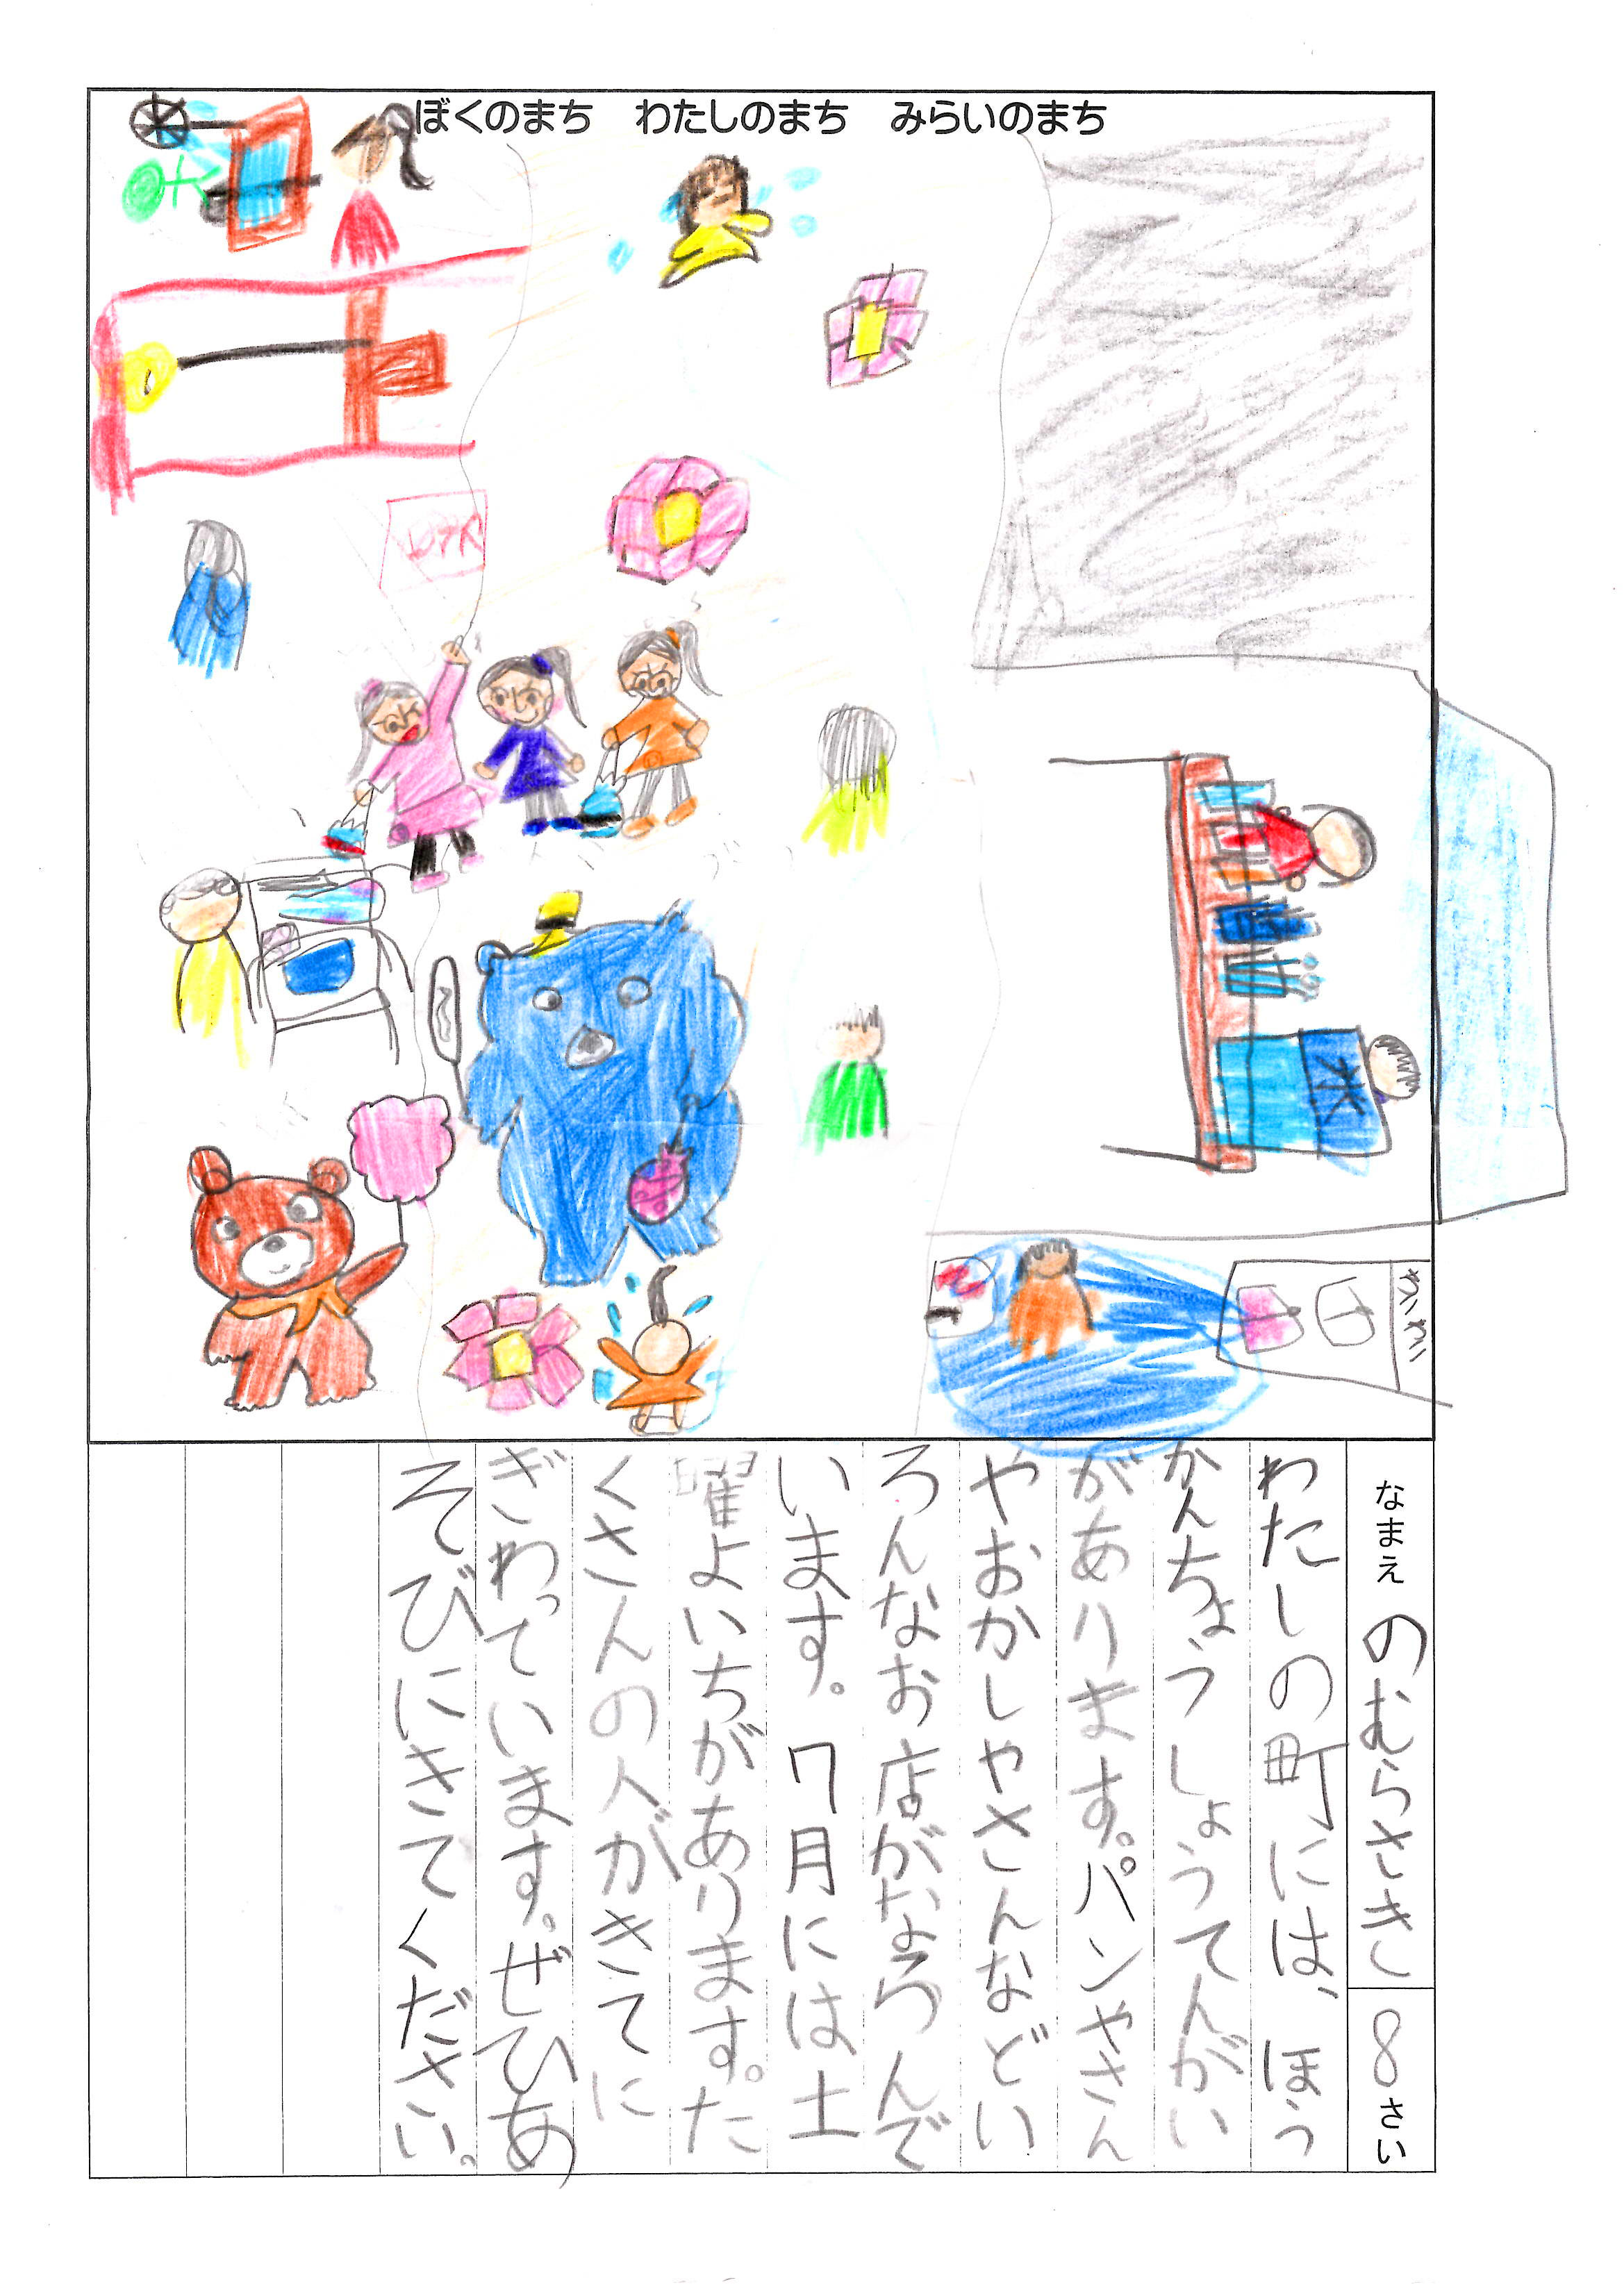 ぼくのまち　わたしのまち　みらいのまち
氷
なまえ　のむらさき　8さい
わたしの町には、ほう
かんちょうしょうてんがい
があります。パンやさん
やおかしやさんなどい
ろんなお店がならんで
います。7月には土
曜よいちがあります。た
くさんの人がきてに
ぎわっています。ぜひあ
そびにきてください。